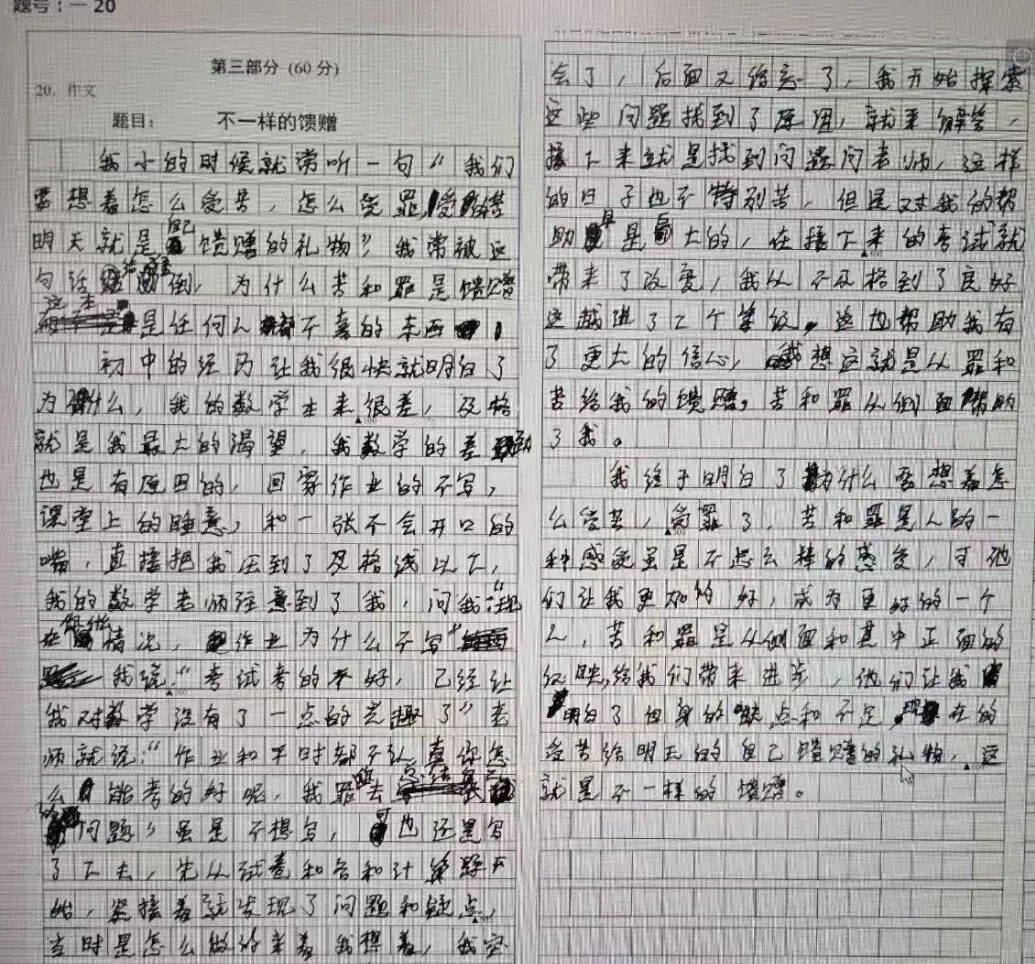 题号：一 20
第三部分 (60 分)
20. 作文
题目： 不一样的馈赠
我小的时候就常听一句“我们
要想着怎么受苦，怎么受罪，受的苦
明天就是自己馈赠的礼物”我常被这
句话倒，为什么苦和罪是馈赠
这本是任何人都不喜的东西
初中的经历让我很快就明白了
为什么，我的数学本来很差，及格
就是我最大的渴望，我数学的差
也是有原因的，回家作业的不写，
课堂上的睡意，和一张不会开口的
嘴，直接把我压到了及格线以下，
我的数学老师注意到了我，问我“
情况，作业为什么不写”
我说：“考试考的不好，已经让
我对数学没有了一点的兴趣了”老
师就说：“作业和平时都不认真你怎
么能考的好呢，我罪去
问题”虽是不想写，可也还是写
了下去，先从试卷和答和计算题开
始，紧接着就发现了问题和缺点，
当时是怎么做的来着我想着，我空
会了，后面又给忘了，我开始探索
这些问题找到了原因，就来解答，
接下来就是找到问题问老师，这样
的日子也不特别苦，但是对我的帮
助是巨大的，在接下来的考试就
带来了改变，我从不及格到了良好
这越进了2个等级。这也帮助我有
了更大的信心，我想这就是从罪和
苦给我的馈赠。苦和罪从侧面帮助
了我。
我终于明白了为什么要想着怎
么受苦，受罪了，苦和罪是人的一
种感受虽是不怎么棒的感受，可他
们让我更加的好，成为更好的一个
人，苦和罪是从侧面和其中正面的
反映，给我们带来进步，他们让我
明白了自身的缺点和不足，现在的
受苦给明天的自己馈赠的礼物，这
就是不一样的馈赠。